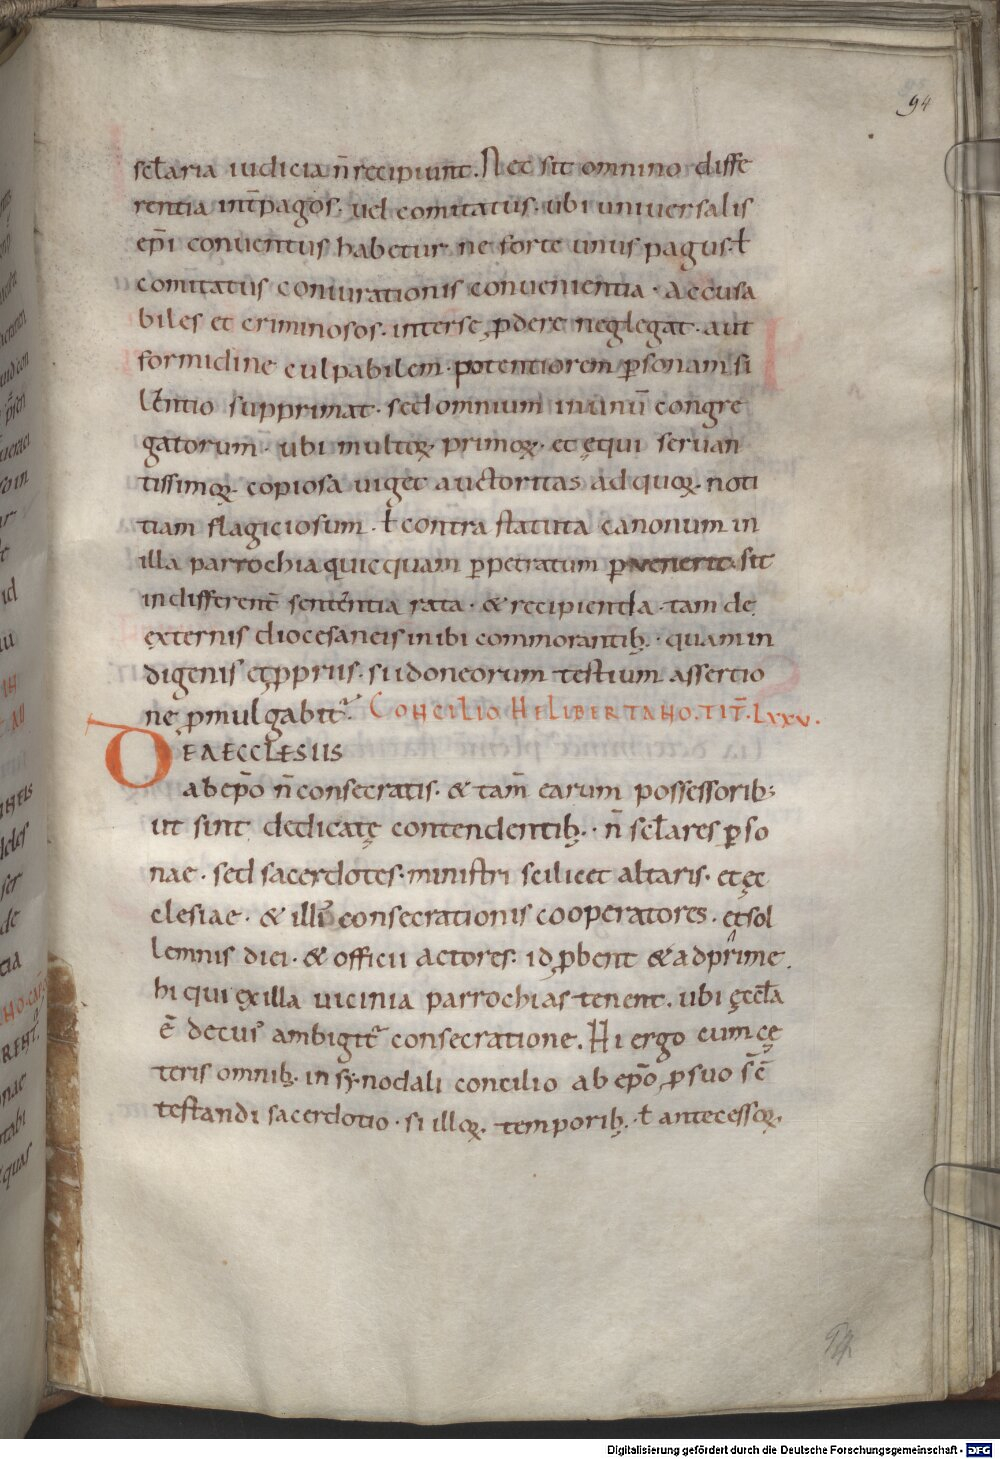 94
scł̄aria iudicia n̄ recipiunt. Nec sit omnino diffe
rentia int̄ pagos. uel comitatus. ubi uniuersalis
ep̄i conuentus habetur ne forte unus pagus. ł
comitatus coniurationis conuenientia. Accusa
biles et criminosos. inter se ꝓdere neglegat. aut
formidine culpabilem. potentiorem ꝑsonam si
lentio supprimat. sed omnium in unū congre
gatorum. ubi multoꝝ primoꝝ. et ęqui seruan
tissimoꝝ copiosa uiget auctoritas ad quoꝝ. noti
tiam flagiciosum. ł contra statuta canonum in
illa parrochia quicquam ꝑpetratum ꝑuenerit. sit
indifferens̄ sententia rata. & recipienda. tam de
externis diocesaneis inibi commorantib;. quam in
digenis et ꝓpriis. si idoneorum testium assertio
ne ꝓmulgabit᷑. CONCILIO HELIBERTANO. TIT̄. LXXV.
DE AECCLESIIS
ab ep̄o n̄ consecratis. & tam̄ earum possessorib;
ut sint dedicatę contendentib;. n̄ scł̄ares ꝑso
nae. sed sacerdotes. ministri scilicet altaris. et ęc
clesiae. & illi᷒ consecrationis cooperatores. et sol
lemnis diei. & officii actores. id ꝓbent & ad prime
hi qui ex illa uicinia parrochias tenent. ubi ęccł̄a
ē de cui᷒ ambigit᷑ consecratione. Hi ergo cum cę
teris omnib;. in synodali concilio ab ep̄o, ꝓ suo s̄c̄
testandi sacerdotio. si illoꝝ. temporib;. ł antecessoꝝ.
Digitalisierung gefördert durch die Deutsche Forschungsgemeinschaft - DFG